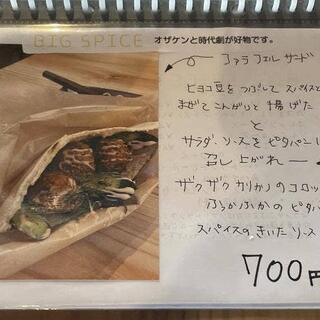 BIG SPICE オザケンと時代劇が好物です。
ファラフェル サンド
ヒヨコ豆をつぶして スパイスと
まぜてこんがりと 揚げた
と
サラダ、ソースをピタパンに
召し上がれ
ザクザク カリカリのコロッ
ふかふかの ピタパ
スパイスのきいたソース
700円